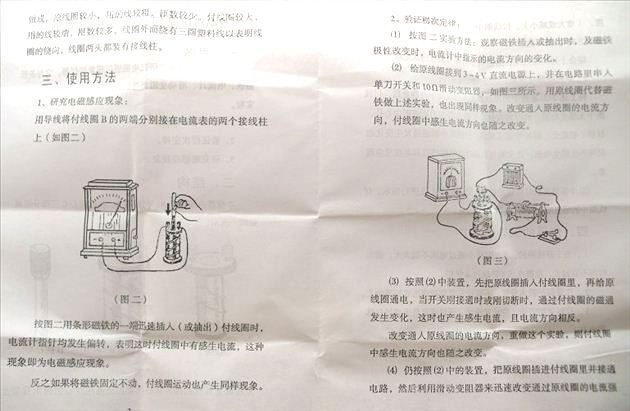 做成，原线圈较小，用的线较粗，匝数较少。付线圈较大，
用的线较细，匝数较多，线圈外面绕有三圈塑料线以表明线
圈的绕向，线圈两头都装有接线柱。
三、使用方法
1、研究电磁感应现象：
用导线将付线圈B的两端分别接在电流表的两个接线柱
上（如图二）
（图 二）
按图二用条形磁铁的一端迅速插入（或抽出）付线圈时，
电流计指针均发生偏转，表明这时付线圈中有感生电流，这种
现象即为电磁感应现象。
反之如果将磁铁固定不动，付线圈运动也产生同样现象。
2、验证楞次定律，
(1) 按图二实验方法：观察磁铁插入或抽出时，及磁铁
极性改变时，电流计中指示的电流方向的变化。
(2) 给原线圈接到3~4V直流电源上，并在电路里串入
单刀开关和10Ω滑动变阻器，如图三所示。用原线圈代替磁
铁做上述实验，也出现同样现象。改变通入原线圈的电流方
向，付线圈中感生电流方向也随之改变。
（图 三）
(3) 按照(2)中装置，先把原线圈插入付线圈里，再给原
线圈通电，当开关刚接通时或刚切断时，通过付线圈的磁通
发生变化，这时也产生感生电流，且电流方向相反。
改变通入原线圈的电流方向，重做这个实验，则付线圈
中感生电流方向也随之改变。
(4) 仍按照(2)中的装置，把原线圈插进付线圈里并接通
电路，然后利用滑动变阻器来迅速改变通过原线圈的电流强